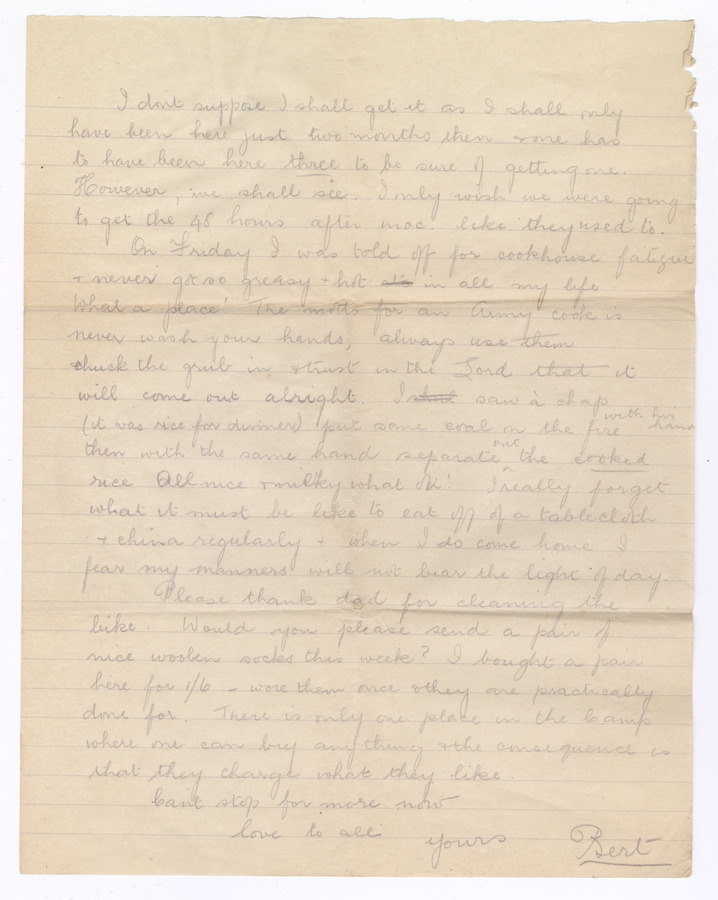 I dont suppose I shall get it as I shall only
have been here just two months then & one has
to have been here three to be sure of getting one.
However, we shall see. I only wish we were going
to get the 48 hours after inoc. like they used to.
On Friday I was told off for cookhouse fatigue
+ never got so greasy + hot in all my life.
What a place! The motto for an Army cook is
never wash your hands, always use them
chuck the grub in & trust in the Lord that it
will come out alright. I saw a chap
(it was rice for dinner) put some coal on the fire with his hand
then with the same hand separate out the cooked
rice All nice & milky what oh! I really forget
what it must be like to eat off of a tablecloth
+ china regularly + when I do come home I
fear my manners will not bear the light of day.
Please thank dad for cleaning the
bike. Would you please send a pair of
nice woolen socks this week? I bought a pair
here for 1/6 - wore them once & they are practically
done for. There is only one place in the Camp
where one can buy any thing & the consequence is
that they charge what they like.
Cant stop for more now
love to all
yours Bert